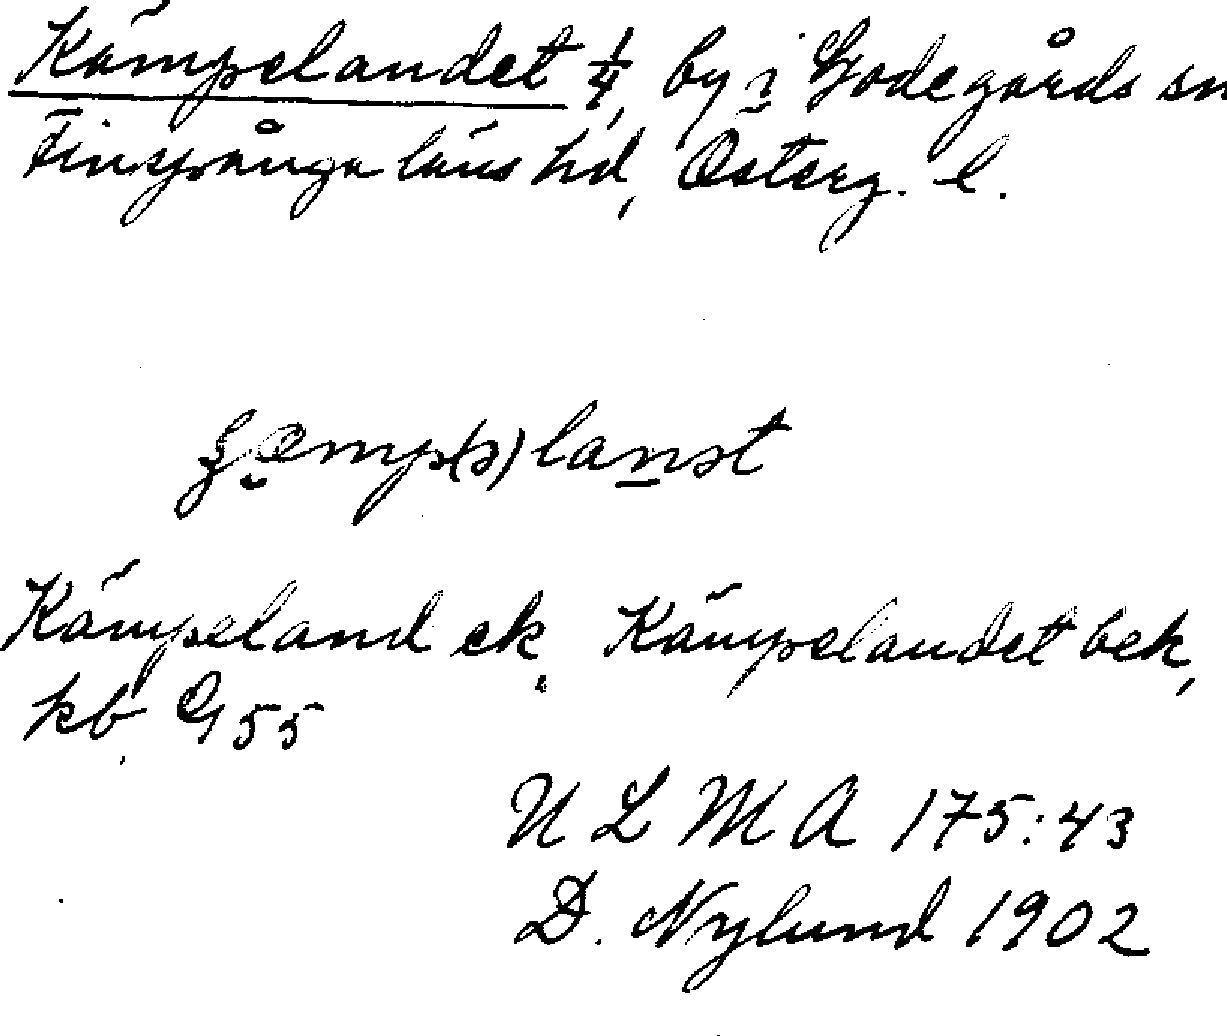 Kämpelandet 1/4, by i Godegårds sn
Finspånga läns hd, Österg. l.
Kämpeland ek, Kämpelandet bek,
kb. G 55
U L M A 175:43
D. Nylund 1902